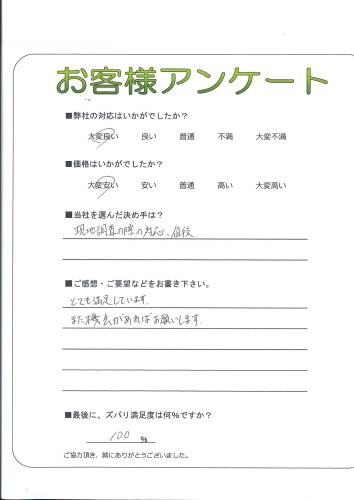 お客様アンケート
■弊社の対応はいかがでしたか？
大変良い 良い 普通 不満 大変不満
■価格はいかがでしたか？
大変安い 安い 普通 高い 大変高い
■当社を選んだ決め手は？
現地調査の際の対応、値段
■ご感想・ご要望などをお書き下さい。
とても満足しています。
また機会があればお願いします。
■最後に、ズバリ満足度は何％ですか？
100 %
ご協力頂き、誠にありがとうございました。